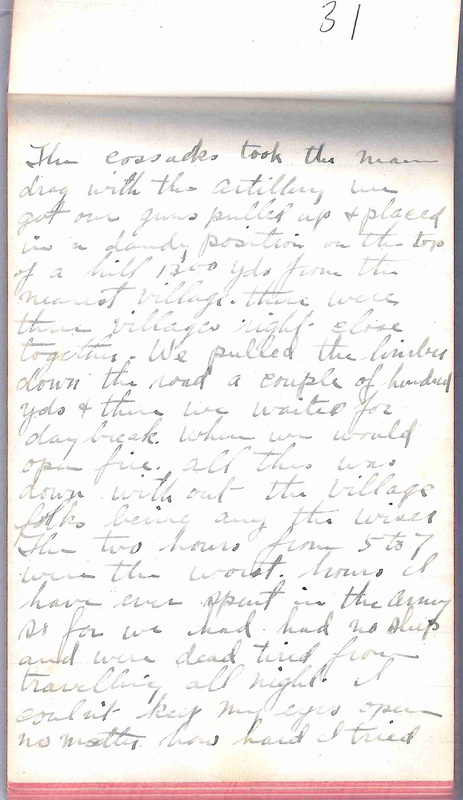 31
The cossacks took the main
drag with the artillery we
got our guns pulled up & placed
in a dandy position on the top
of a hill 1300 yds from the
nearest village. there were
three villages right close
together. We pulled the limbers
down the road a couple of hundred
yds & there we waited for
daybreak when we would
open fire. all this was
down with out the village
folks being any the wiser
The two hours from 5 to 7
were the worst. hours I
have ever spent in the army
so far we had had no sleep
and were dead tired from
travelling all night. I
couldn't keep my eyes open
no matter how hard I tried